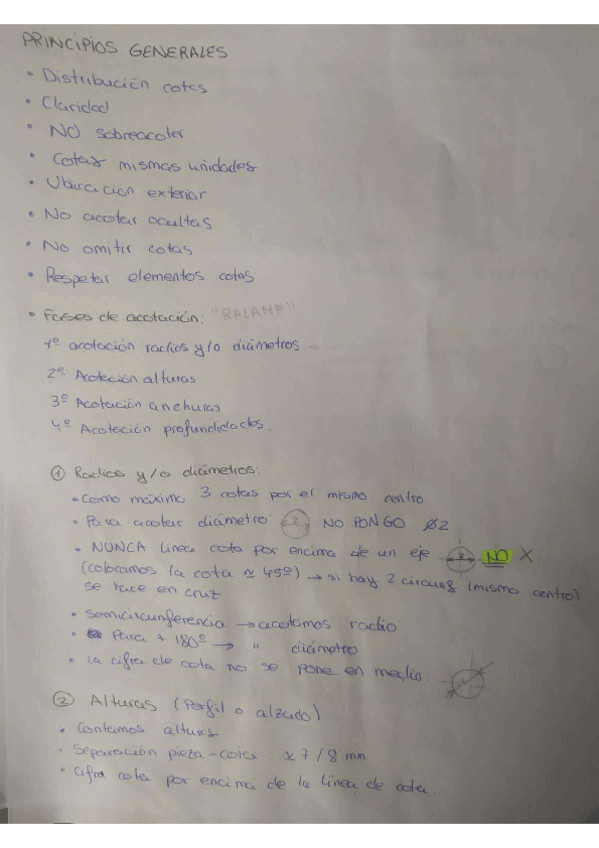 PRINCIPIOS GENERALES
• Distribución cotas
• Claridad
• NO sobreacotar
• Cotas mismas unidades
• Ubicación exterior
• No acotar ocultas
• No omitir cotas
• Respetar elementos cotas
• Fases de acotación: "RALAMP"
1º acotación radios y/o diámetros
2º Acotación alturas
3º Acotación anchuras
4º Acotación profundidades.
① Radios y/o diámetros:
• Como máximo 3 cotas por el mismo centro
• Para acotar diámetro 2 NO PONGO Ø2
• NUNCA linea cota por encima de un eje 2 NO X
(colocamos la cota ≃ 45º) → si hay 2 circunf (mismo centro)
se hace en cruz
• Semicircunferencia → acotamos radio
• Para + 180º → " diámetro
• la cifra de cota no se pone en medio:
② Alturas (Perfil o alzado)
• Contamos alturas
• Separación pieza-cota: ≃ 7/8 mm
• Cifra cota por encima de la linea de cota.